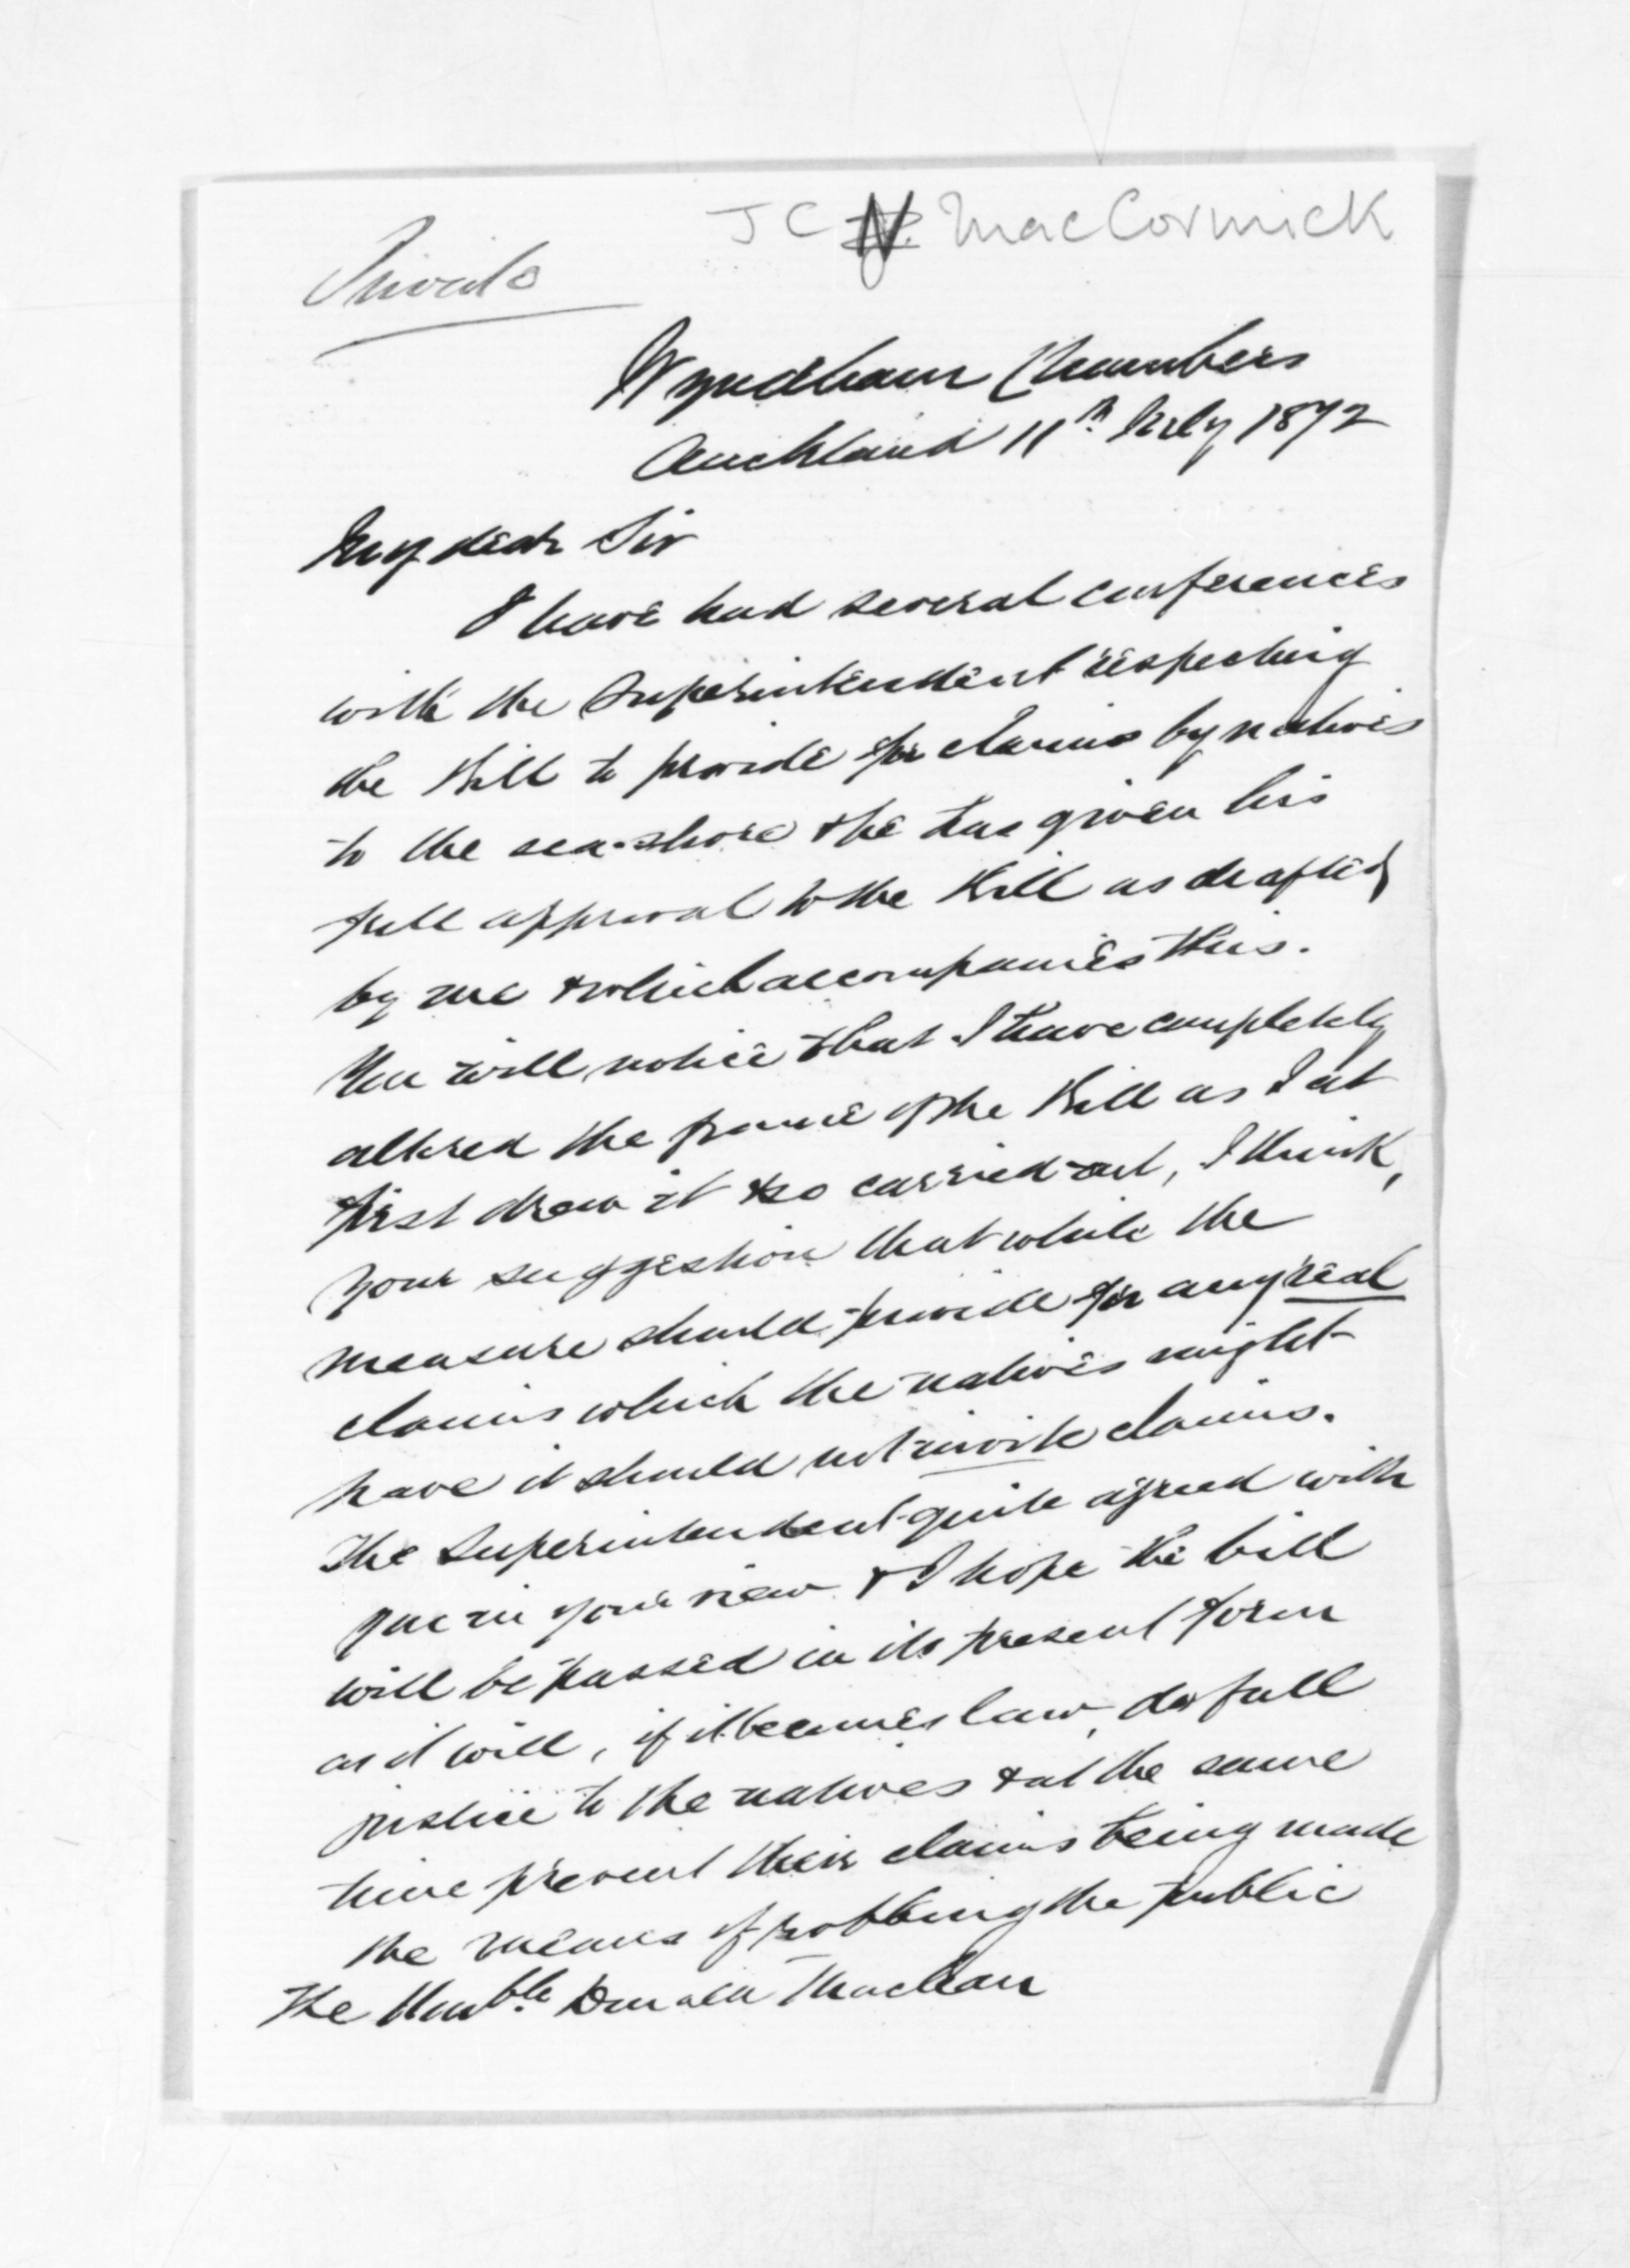 J C N. MacCormick
Private
Wyndham Chambers
Auckland 11th July 1872
My dear Sir
I have had several conferences
with the Superintendent respecting
the Bill to provide for claims by natives
to the sea-shore & he has given his
full approval to the Bill as drafted
by me & which accompanies this.
You will notice that I have completely
altered the frame of the Bill as I at
first drew it & so carried out, I think,
your suggestion that while the
measure should provide for any real
claims which the natives might
have it should not invite claims.
The Superintendent quite agreed with
me in your view & I hope the bill
will be passed in its present form
as it will, if it becomes law, do full
justice to the natives & at the same
time prevent their claims being made
the means of robbing the public
The Honble Donald Maclean